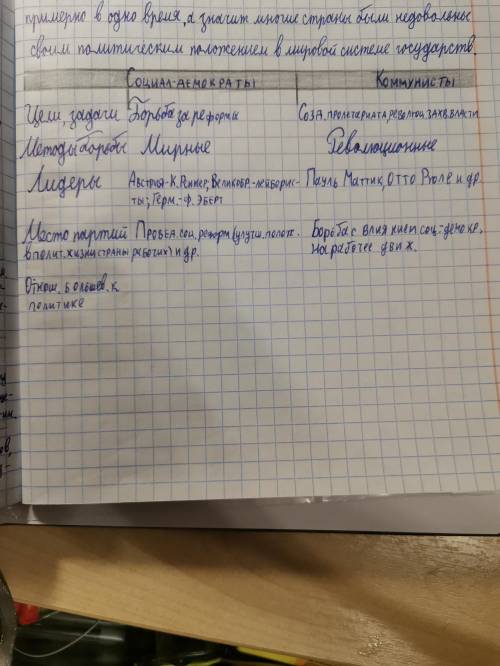 примерно в одно время, а значит многие страны были недовольны
своим политическим положением в мировой системе государств.
Социал-демократы Коммунисты
Цели, задачи Борьба за реформы Созд. пролетариата, революц. захв. власти
Методы борьбы Мирные Революционные
Лидеры Австрия-К. Реннер; Великобр.-лейборис- Пауль Маттик, Отто Рюле и др.
ты; Герм.-Ф. Эберт
Место партий Провед. соц. реформ (улучш. полож. Борьба с влиянием соц.-демокр.
в полит. жизни страны рабочих) и др. на рабочее движ.
Отнош. большев. к
политике